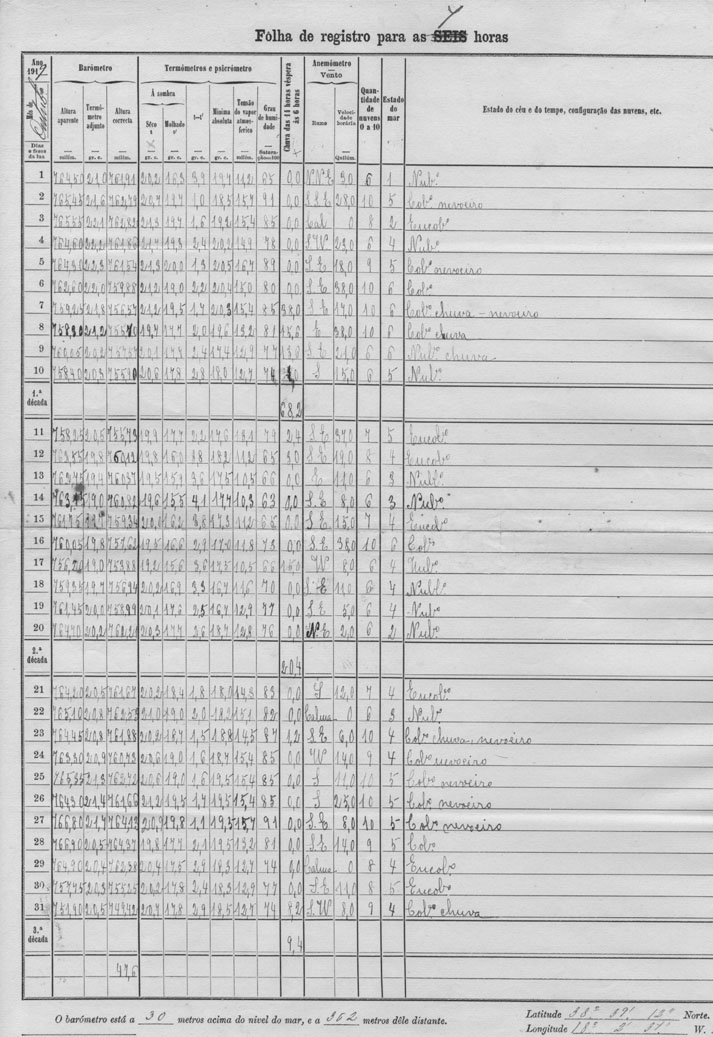 7
Fôlha de registro para as SEIS horas
Ano 1917 Barómetro Termómetros e psicrómetro Chuva das 14 horas véspera ás 6 horas Anemómetro Quantidade de nuvens 0 a 10 Estado do mar Estado do céu e do tempo, configuração das nuvens, etc.
Mês de Outubro À sombra Vento
Dias e fases da lua Altura aparente Termómetro adjunto Altura correcta Sêco t Molhado t' t—t' Mínima absoluta Tensão do vapor atmosférico Grau de humidade Rumo Velocidade horária
milím. gr. c. milím. gr. c. gr. c. gr. c. gr. c. milím. Saturação=100 milím. Quilóm.
1 764,50 21,0 761,91 20,2 16,3 3,9 19,7 11,2 65 0,0 N.N.E 3,0 6 1 Nub.º
2 765,45 21,6 762,79 20,7 19,7 1,0 18,5 15,7 91 0,0 S.S.E 28,0 10 5 Cob.º nevoeiro
3 765,55 22,1 762,82 21,3 19,7 1,6 19,2 15,4 85 0,0 Cal 0 8 2 Encob.º
4 764,60 22,2 761,86 21,7 19,3 2,4 20,2 78 0,0 S.W 23,0 6 4 Nub.º
5 764,30 22,3 761,54 21,3 20,0 1,3 20,5 16,7 89 0,0 S.E 18,0 9 5 Cob.º nevoeiro
6 762,60 22,0 759,88 21,2 19,0 2,2 20,4 15,0 80 0,0 S.E 38,0 10 6 Cob.º
7 759,25 21,8 756,57 21,2 19,5 1,7 20,3 15,4 85 38,0 S.E 17,0 10 6 Cob.º chuva - nevoeiro
8 758,30 21,2 755,70 19,7 17,7 2,0 19,6 13,2 81 15,6 E 38,0 10 6 Cob.º chuva
9 760,05 20,2 757,57 20,1 17,7 2,4 17,4 12,9 77 S.E 21,0 6 6 Nub.º chuva
10 758,40 20,3 755,90 20,6 17,8 2,8 18,0 12,7 74 S 15,0 6 5 Nub.º
1.ª década 68,2
11 758,25 20,5 755,73 19,9 17,7 2,2 17,6 79 2,4 S.E 37,0 7 5 Encob.º
12 762,55 19,8 760,12 19,8 16,0 3,8 18,2 11,2 65 3,0 S.E 19,0 8 4 Encob.º
13 762,75 19,4 760,37 19,5 15,9 3,6 17,5 10,5 66 0,0 E 11,0 6 3 Nubl.º
14 19,0 760,82 19,6 15,5 4,1 17,7 10,3 63 0,0 S.E 8,0 6 3 Nub.º
15 761,75 759,34 20,0 16,2 3,8 17,3 11,2 66 0,0 S.E 15,0 7 4 Encob.º
16 760,05 19,8 757,62 19,5 16,6 2,9 17,0 11,8 73 0,0 S.E 38,0 10 6 Cob.º
17 756,20 19,0 753,88 19,2 15,6 3,6 17,5 10,5 66 15,0 W 8,0 6 4 Nub.º
18 759,35 19,7 756,94 20,2 16,9 3,3 16,7 11,6 70 0,0 S.E 11,0 6 4 Nubl.º
19 761,45 20,0 758,99 20,1 17,6 2,5 16,7 12,9 77 0,0 S.E 5,0 6 4 Nub.º
20 764,70 20,2 762,21 20,3 17,7 2,6 18,7 12,8 76 0,0 N.E 2,0 6 2 Nub.º
2.ª década 20,4
21 764,20 20,5 761,67 20,2 18,4 1,8 18,0 14,3 83 0,0 S 12,0 7 4 Encob.º
22 765,10 20,8 762,53 21,0 19,0 2,0 18,2 15,1 82 0,0 Calma 0 6 3 Nub.º
23 764,45 20,8 761,88 20,2 18,7 1,5 18,8 14,5 87 1,2 S.E 6,0 10 4 Cob.º chuva, nevoeiro
24 763,30 20,9 760,73 20,6 19,0 1,6 18,7 15,4 85 0,0 W 14,0 9 4 Cob.º nevoeiro
25 765,35 21,3 762,72 20,6 19,0 1,6 19,5 15,4 85 0,0 S 11,0 10 5 Cob.º nevoeiro
26 764,30 21,4 761,66 21,2 19,5 1,7 19,5 15,4 85 0,0 S 25,0 10 5 Cob.º nevoeiro
27 766,80 21,7 764,12 20,9 19,8 1,1 19,5 15,7 91 0,0 S.E 8,0 10 5 Cob.º nevoeiro
28 766,90 20,5 764,37 19,8 17,7 2,1 19,5 13,2 81 0,0 S.E 14,0 9 5 Cob.º
29 764,90 20,4 762,38 20,4 17,5 2,9 18,3 12,7 74 0,0 Calma 0 8 4 Encob.º
30 757,75 20,3 755,25 20,2 17,8 2,4 18,3 12,9 77 0,0 S.E 11,0 8 5 Encob.º
31 751,90 20,5 749,42 20,7 17,8 2,9 18,5 12,7 74 8,2 S.W 8,0 9 4 Cob.º chuva
3.ª década 9,4
47,6
O barómetro está a 30 metros acima do nivel do mar, e a 362 metros dêle distante.
Latitude 38º 37' 12" Norte.
Longitude 18º 2' 37' W.